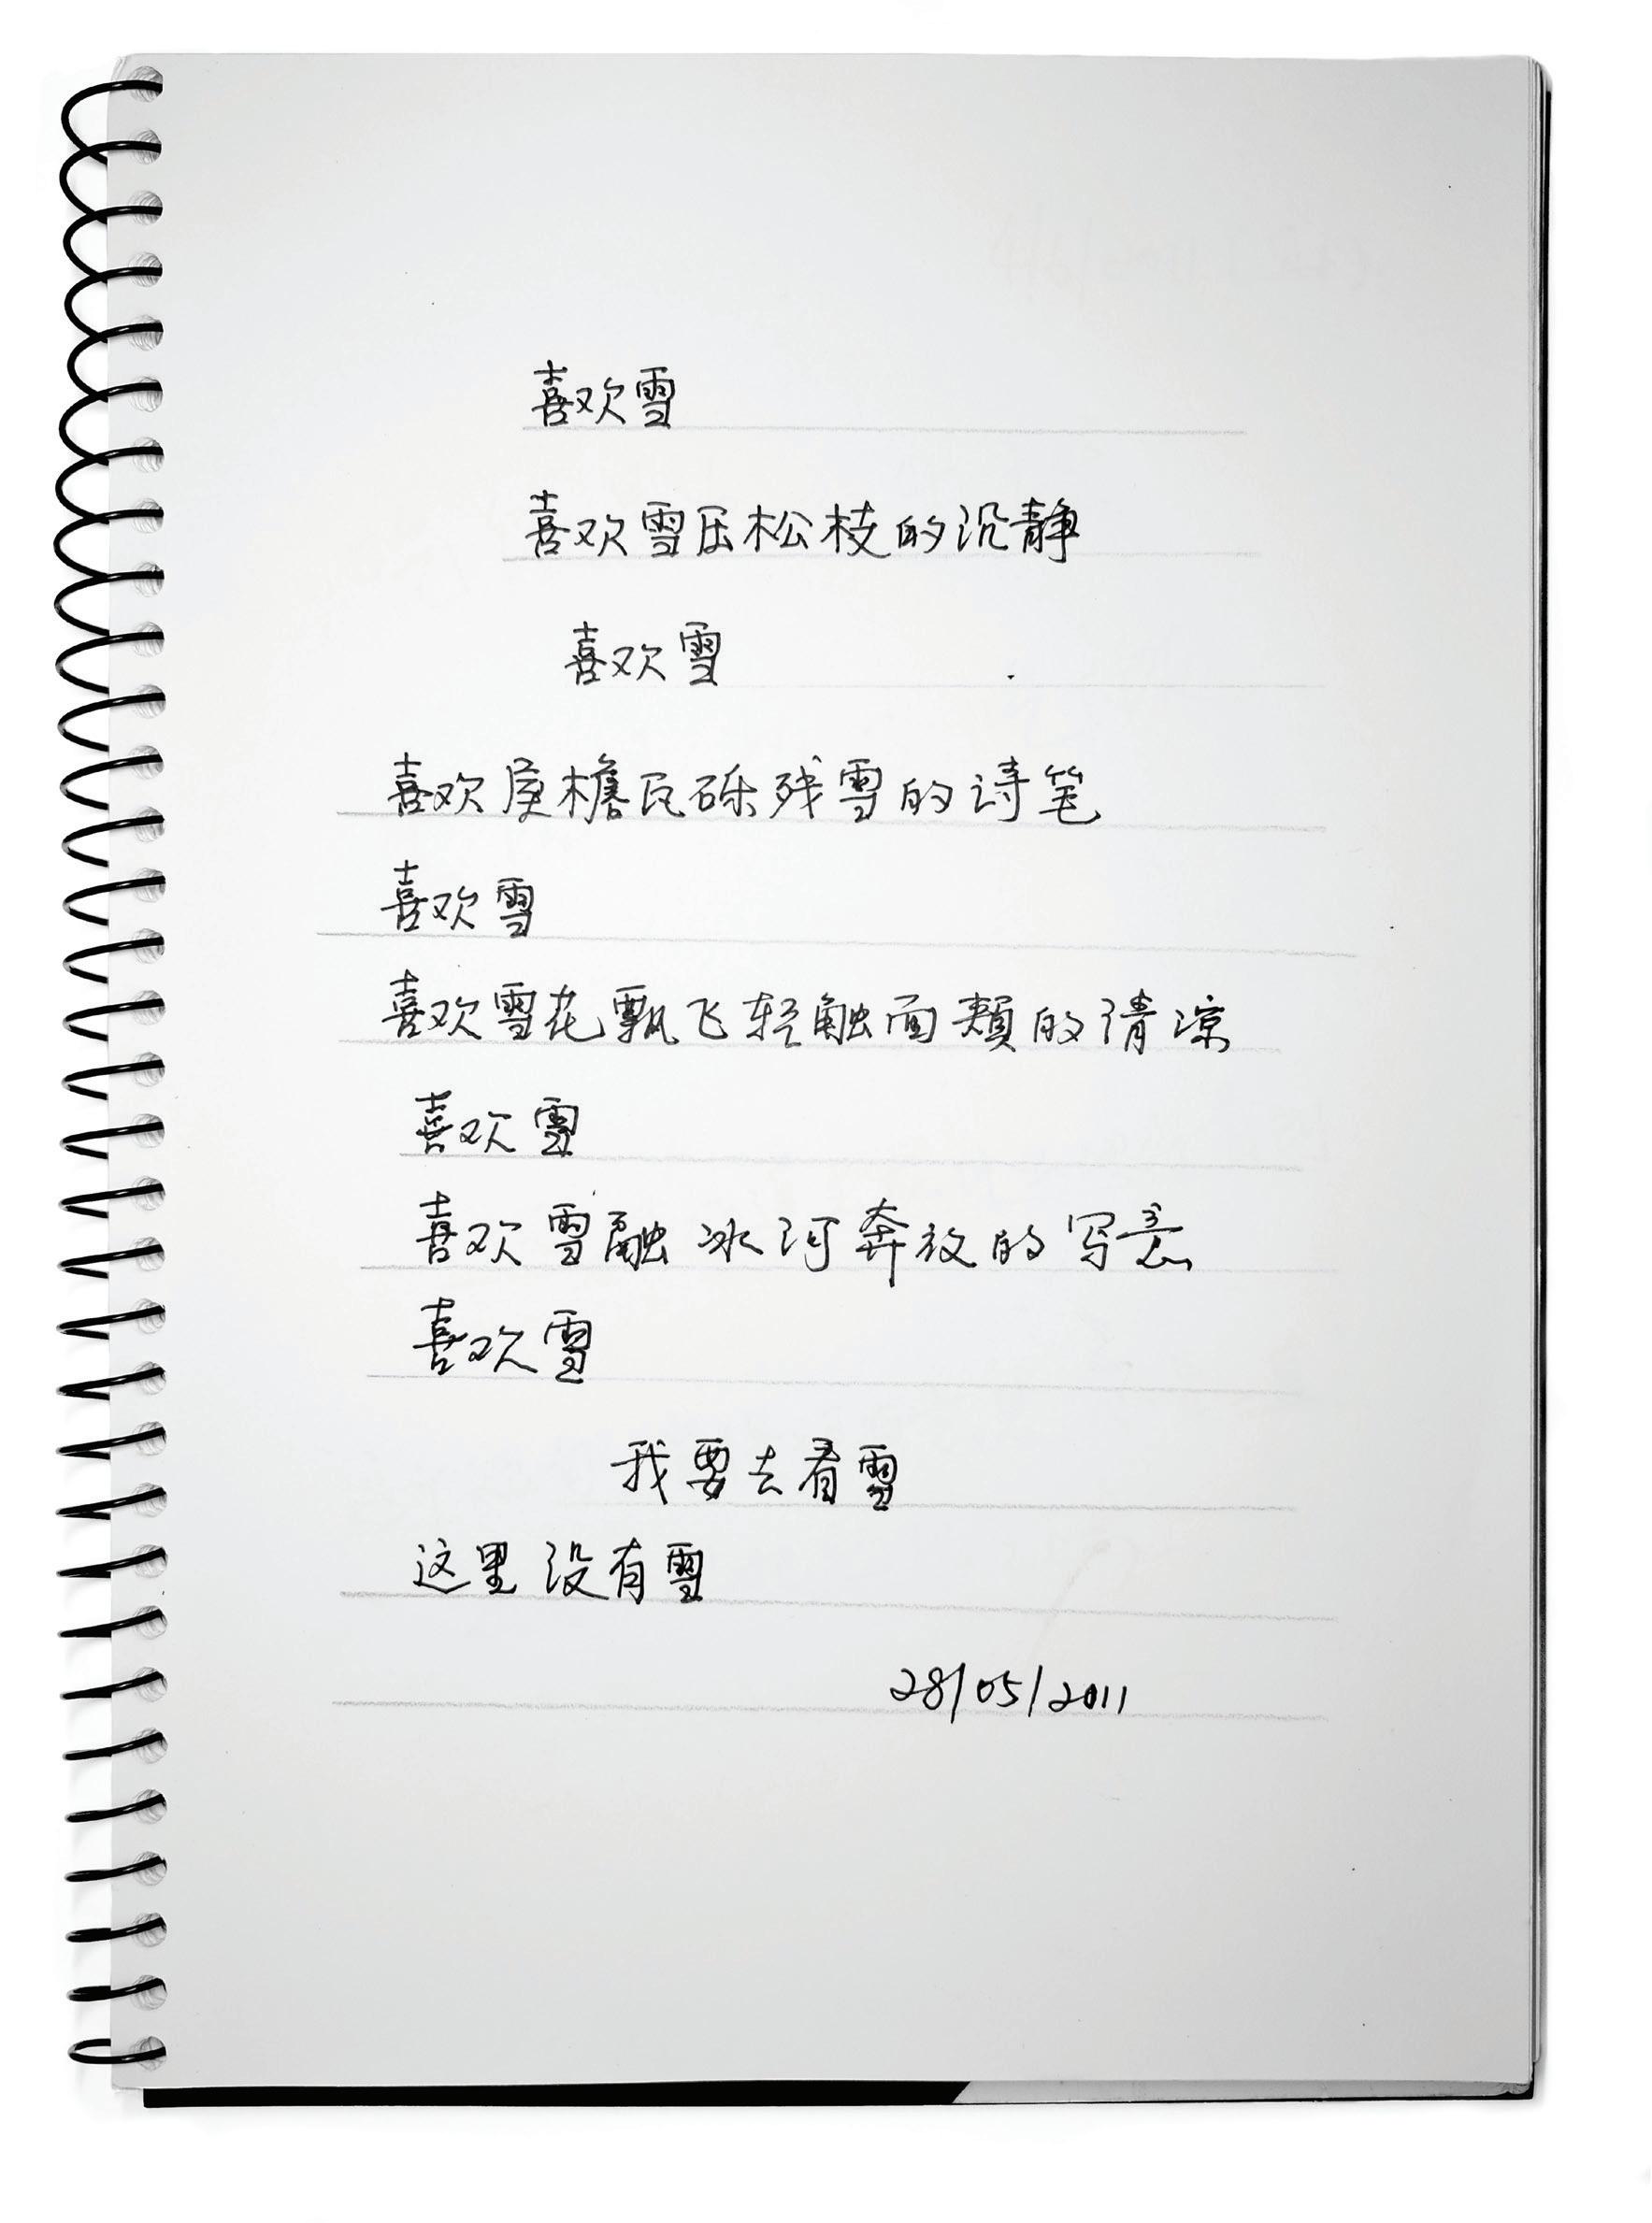 喜欢雪
喜欢雪压松枝的沉静
喜欢雪
喜欢屋檐瓦砾残雪的诗笔
喜欢雪
喜欢雪花飘飞轻触面颊的清凉
喜欢雪
喜欢雪融冰河奔放的写意
喜欢雪
我要去看雪
这里没有雪
28/05/2011